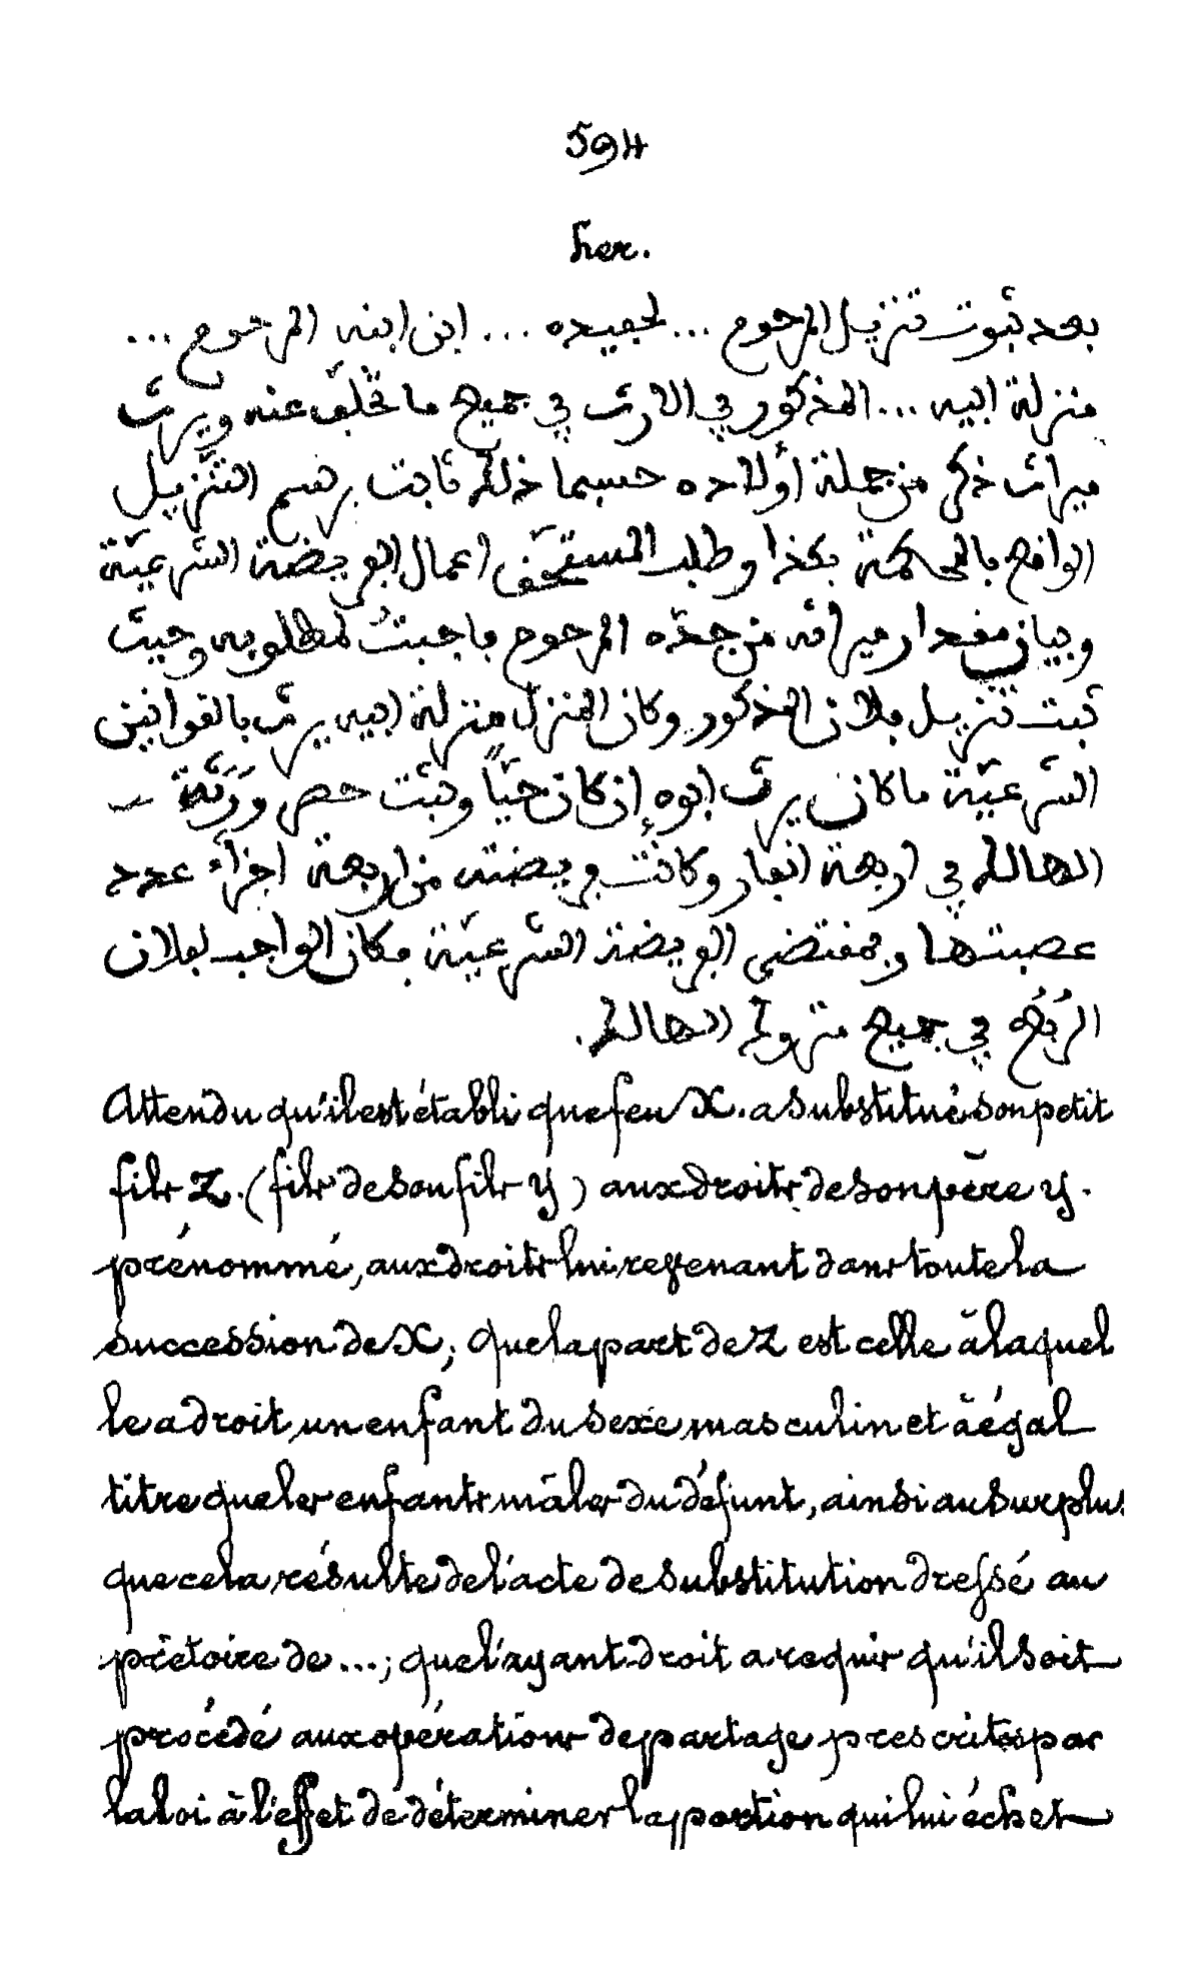 594
her.
بعد ثبوت تنزيل المرحوم ... لحفيده ... ابن ابنه المرحوم ...
منزلة ابيه ... المذكور في الارث في جميع ما تخلّف عنه ويرث
ميراث ذكر من جملة أولاده حسبما ذلك ثابت برسم التنزيل
الواقع بالمحكمة بكذا وطلب المستحَق اعمال الفريضة الشرعيّة
وبيان مقدار ميراثه من جدّه المرحوم فاجبتُ لمطلوبه وحيث
ثبت تنزيل فلان المذكور وكان المنزل منزلة ابيه يرث بالقوانين
الشرعيّة ما كان يرث ابوه إن كان حيّاً وثبت حصر وَرَثَة
الهالك في اربعة انفار وكانت فريضته من اربعة اجزاء عدد
عصبتها وبمقتضى الفريضة الشرعيّة فكان الواجب لفلان
الرُبُع في جميع متروك الهالك.
Attendu qu'il est établi que feu X. a substitué son petit
fils Z. (fils de son fils Y) aux droits de son père Y.
prénommé, aux droits lui revenant dans toute la
succession de X; que la part de Z est celle à laquel
le a droit un enfant du sexe masculin et à égal
titre que les enfants mâles du défunt, ainsi au surplus
que cela résulte de l'acte de substitution dressé au
prétoire de ...; que l'ayant-droit a requis qu'il soit
procédé aux opérations de partage prescrites par
la loi à l'effet de déterminer la portion qui lui échet